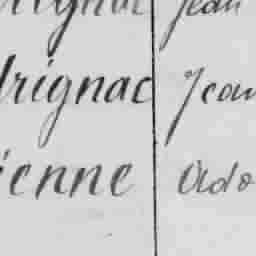 rignac Jean
drignac Jean
ienne Ado